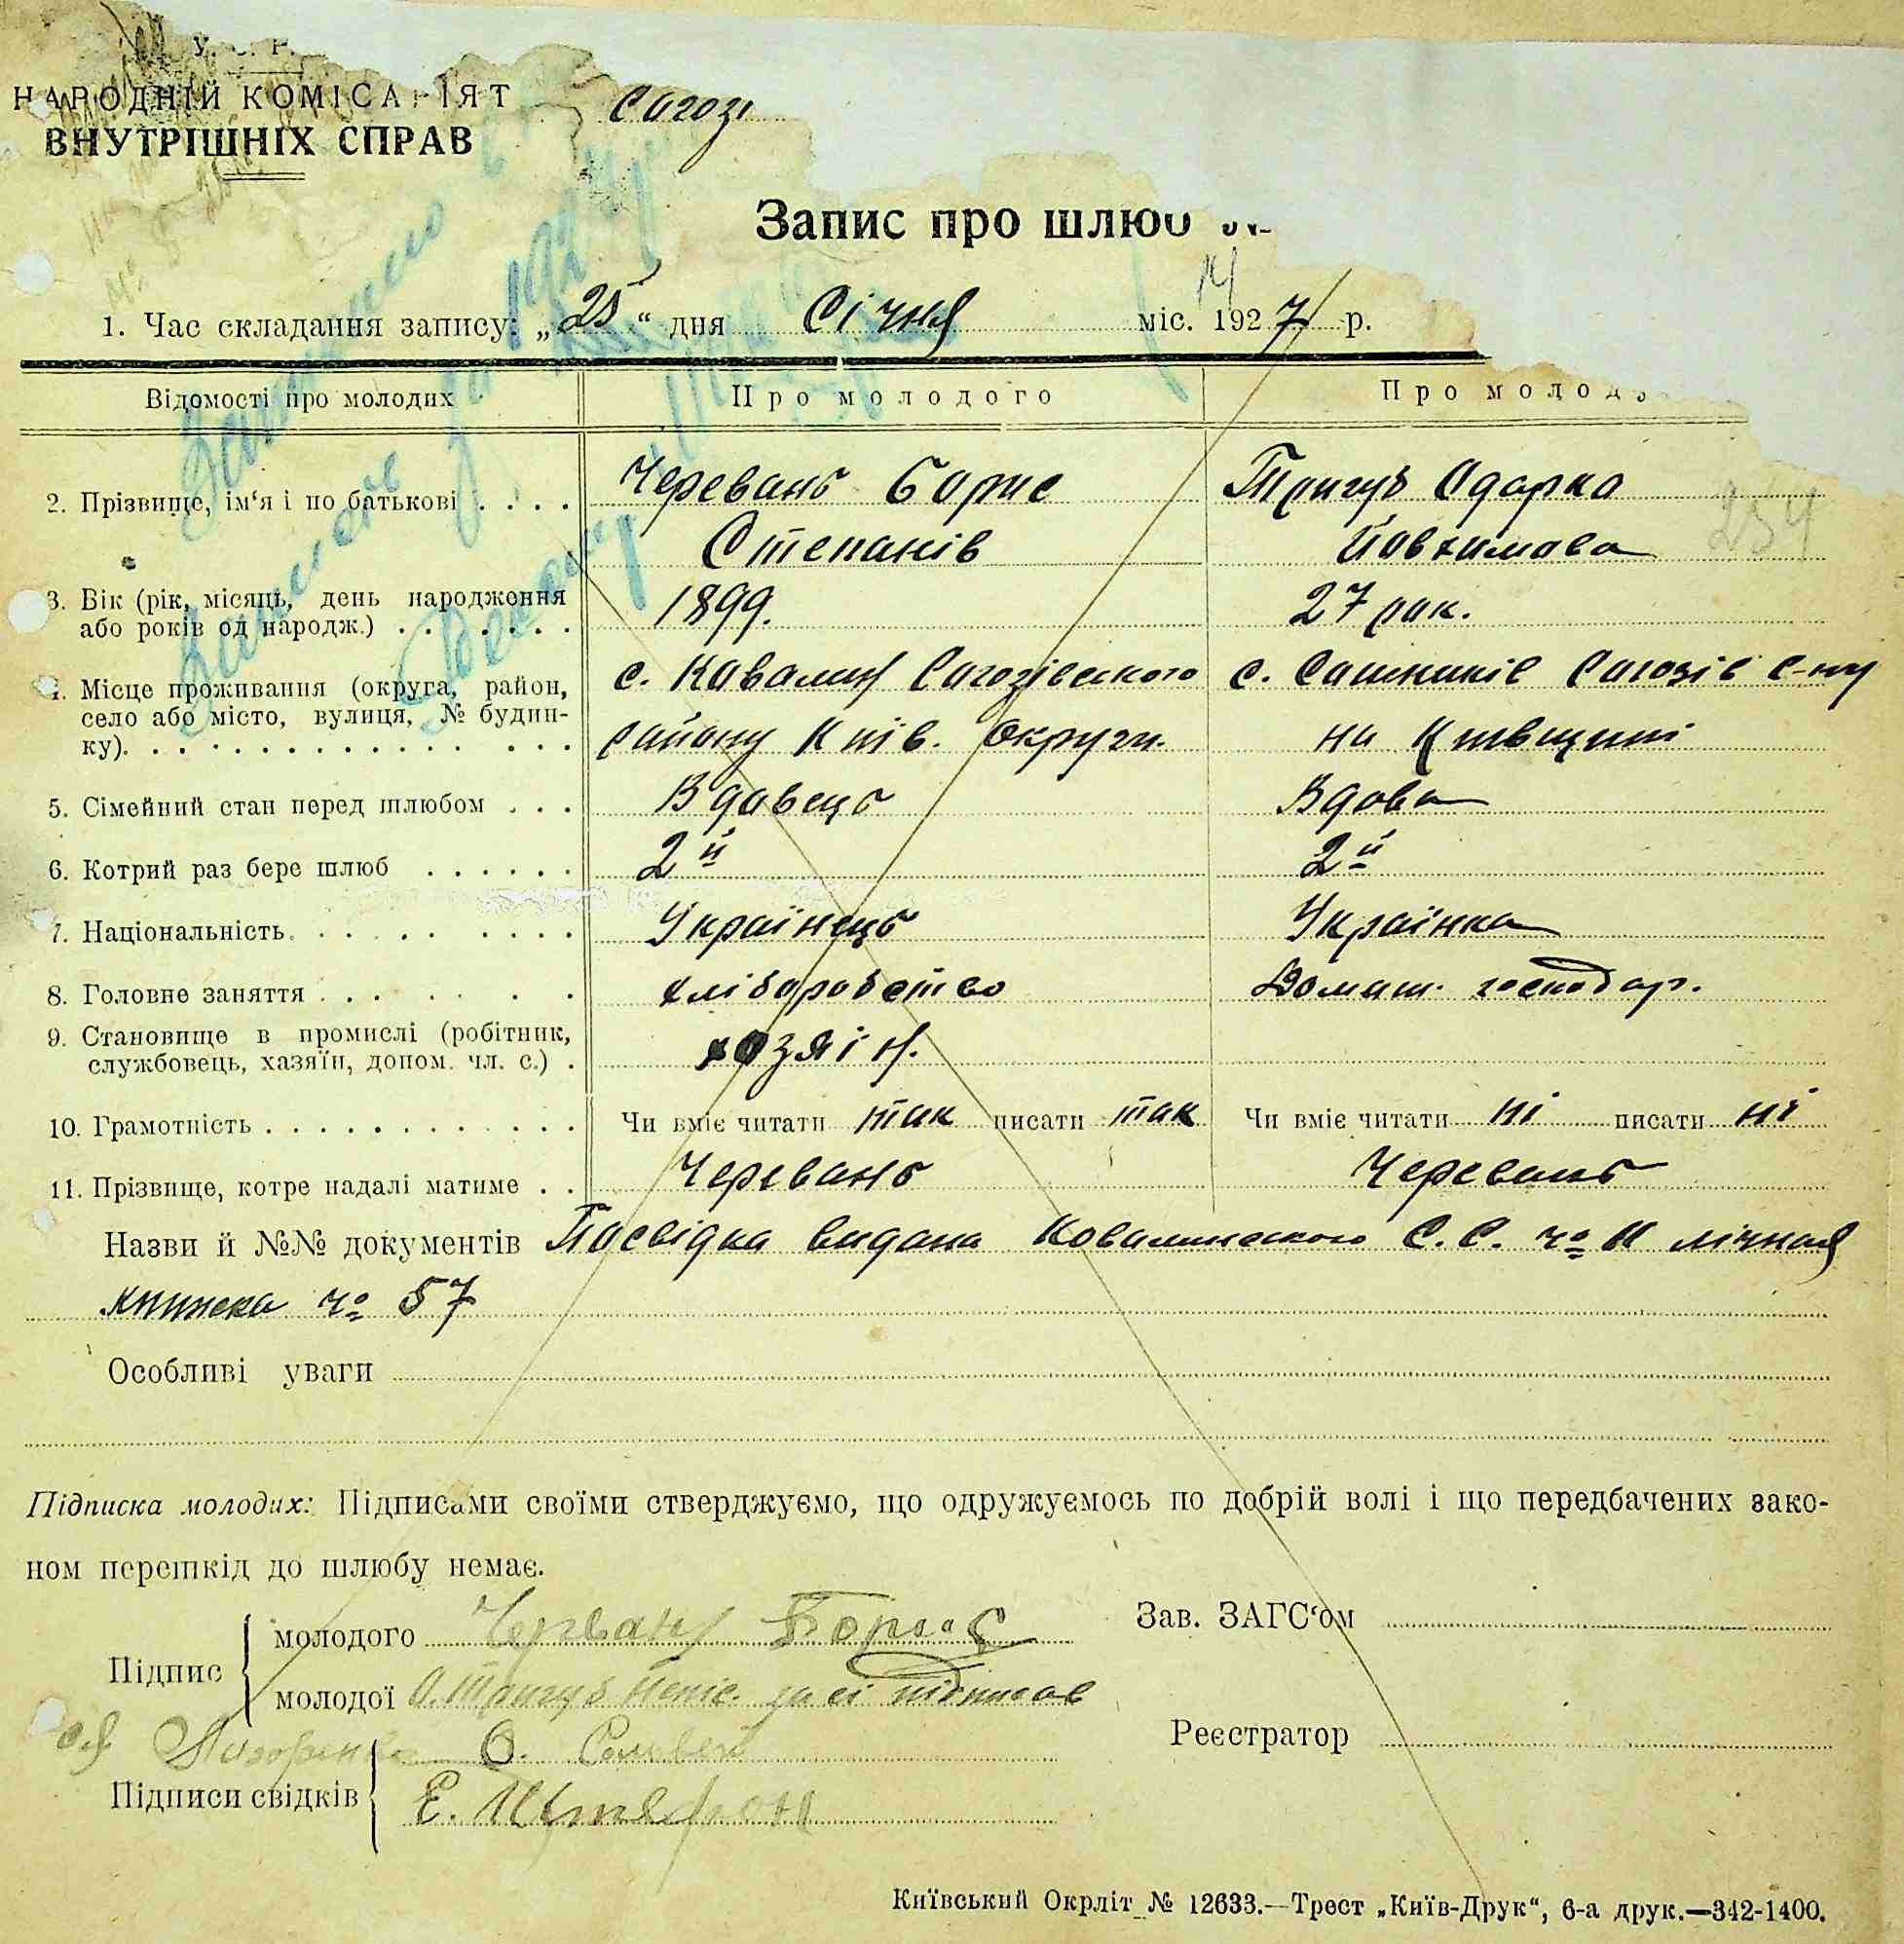 У. С. Р.
НАРОДНІЙ КОМІСАРІЯТ
ВНУТРІШНІХ СПРАВ
Сагозі
Запис про шлюб №
1. Час складання запису: „25“ дня Січня міс. 1927 р.
Відомості про молодих Про молодого Про молоду
2. Прізвище, ім‘я і по батькові . . . . Черевань Борис Тригуб Одарка
Степанів Йовхимова 254
3. Вік (рік, місяць, день народження 1899. 27 рок.
або років од народж.) . . . . . . .
4. Місце проживання (округа, район, с. Ковалин Сагозівского с. Сошників Сагозів с-ну
село або місто, вулиця, № будин- району Київ. округи. на Київщині
ку). . . . . . . . . . . . . . . .
5. Сімейний стан перед шлюбом . . . Вдовець Вдова
6. Котрий раз бере шлюб . . . . . . 2й 2й
7. Національність. . . . . . . . . . Українець Українка
8. Головне заняття . . . . . . . хліборобство Домаш. господар.
9. Становище в промислі (робітник, хозяін.
службовець, хазяїн, допом. чл. с.) .
10. Грамотність . . . . . . . . . . . . Чи вміє читати так писати так Чи вміє читати ні писати ні
11. Прізвище, котре надалі матиме . . Черевань Черевань
Назви й №№ документів Посвідка видана Ковалинского С.С. чо 11 лічная
книжка чо 57
Особливі уваги
Підписка молодих: Підписами своїми стверджуємо, що одружуємось по добрій волі і що передбачених зако-
ном перешкід до шлюбу немає.
Підпис
молодого Черевань Борис
молодої О. Тригуб Непис. за еі підписав
Зав. ЗАГС‘ом
Реєстратор
Підписи свідків
О.
Е.
Київський Окрліт № 12633.—Трест „Київ-Друк“, 6-а друк.—342-1400.